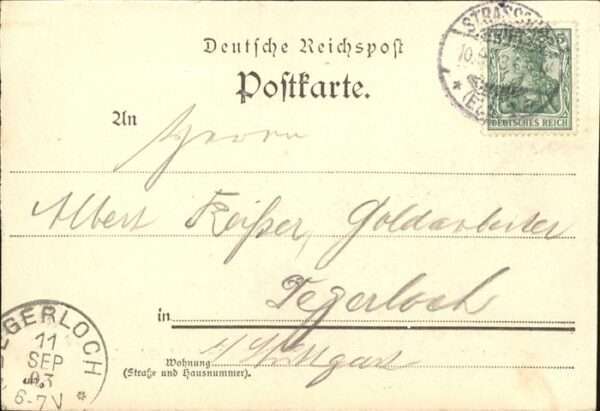 Deutsche Reichspost
Postkarte.
STRASSB
10.9.
(ELS
DEUTSCHES REICH
An Herrn
Albert Reißer, Goldarbeiter
in Degerloch
Wohnung b/Stuttgart
(Straße und Hausnummer).
DEGERLOCH
11
SEP
03
6-7V